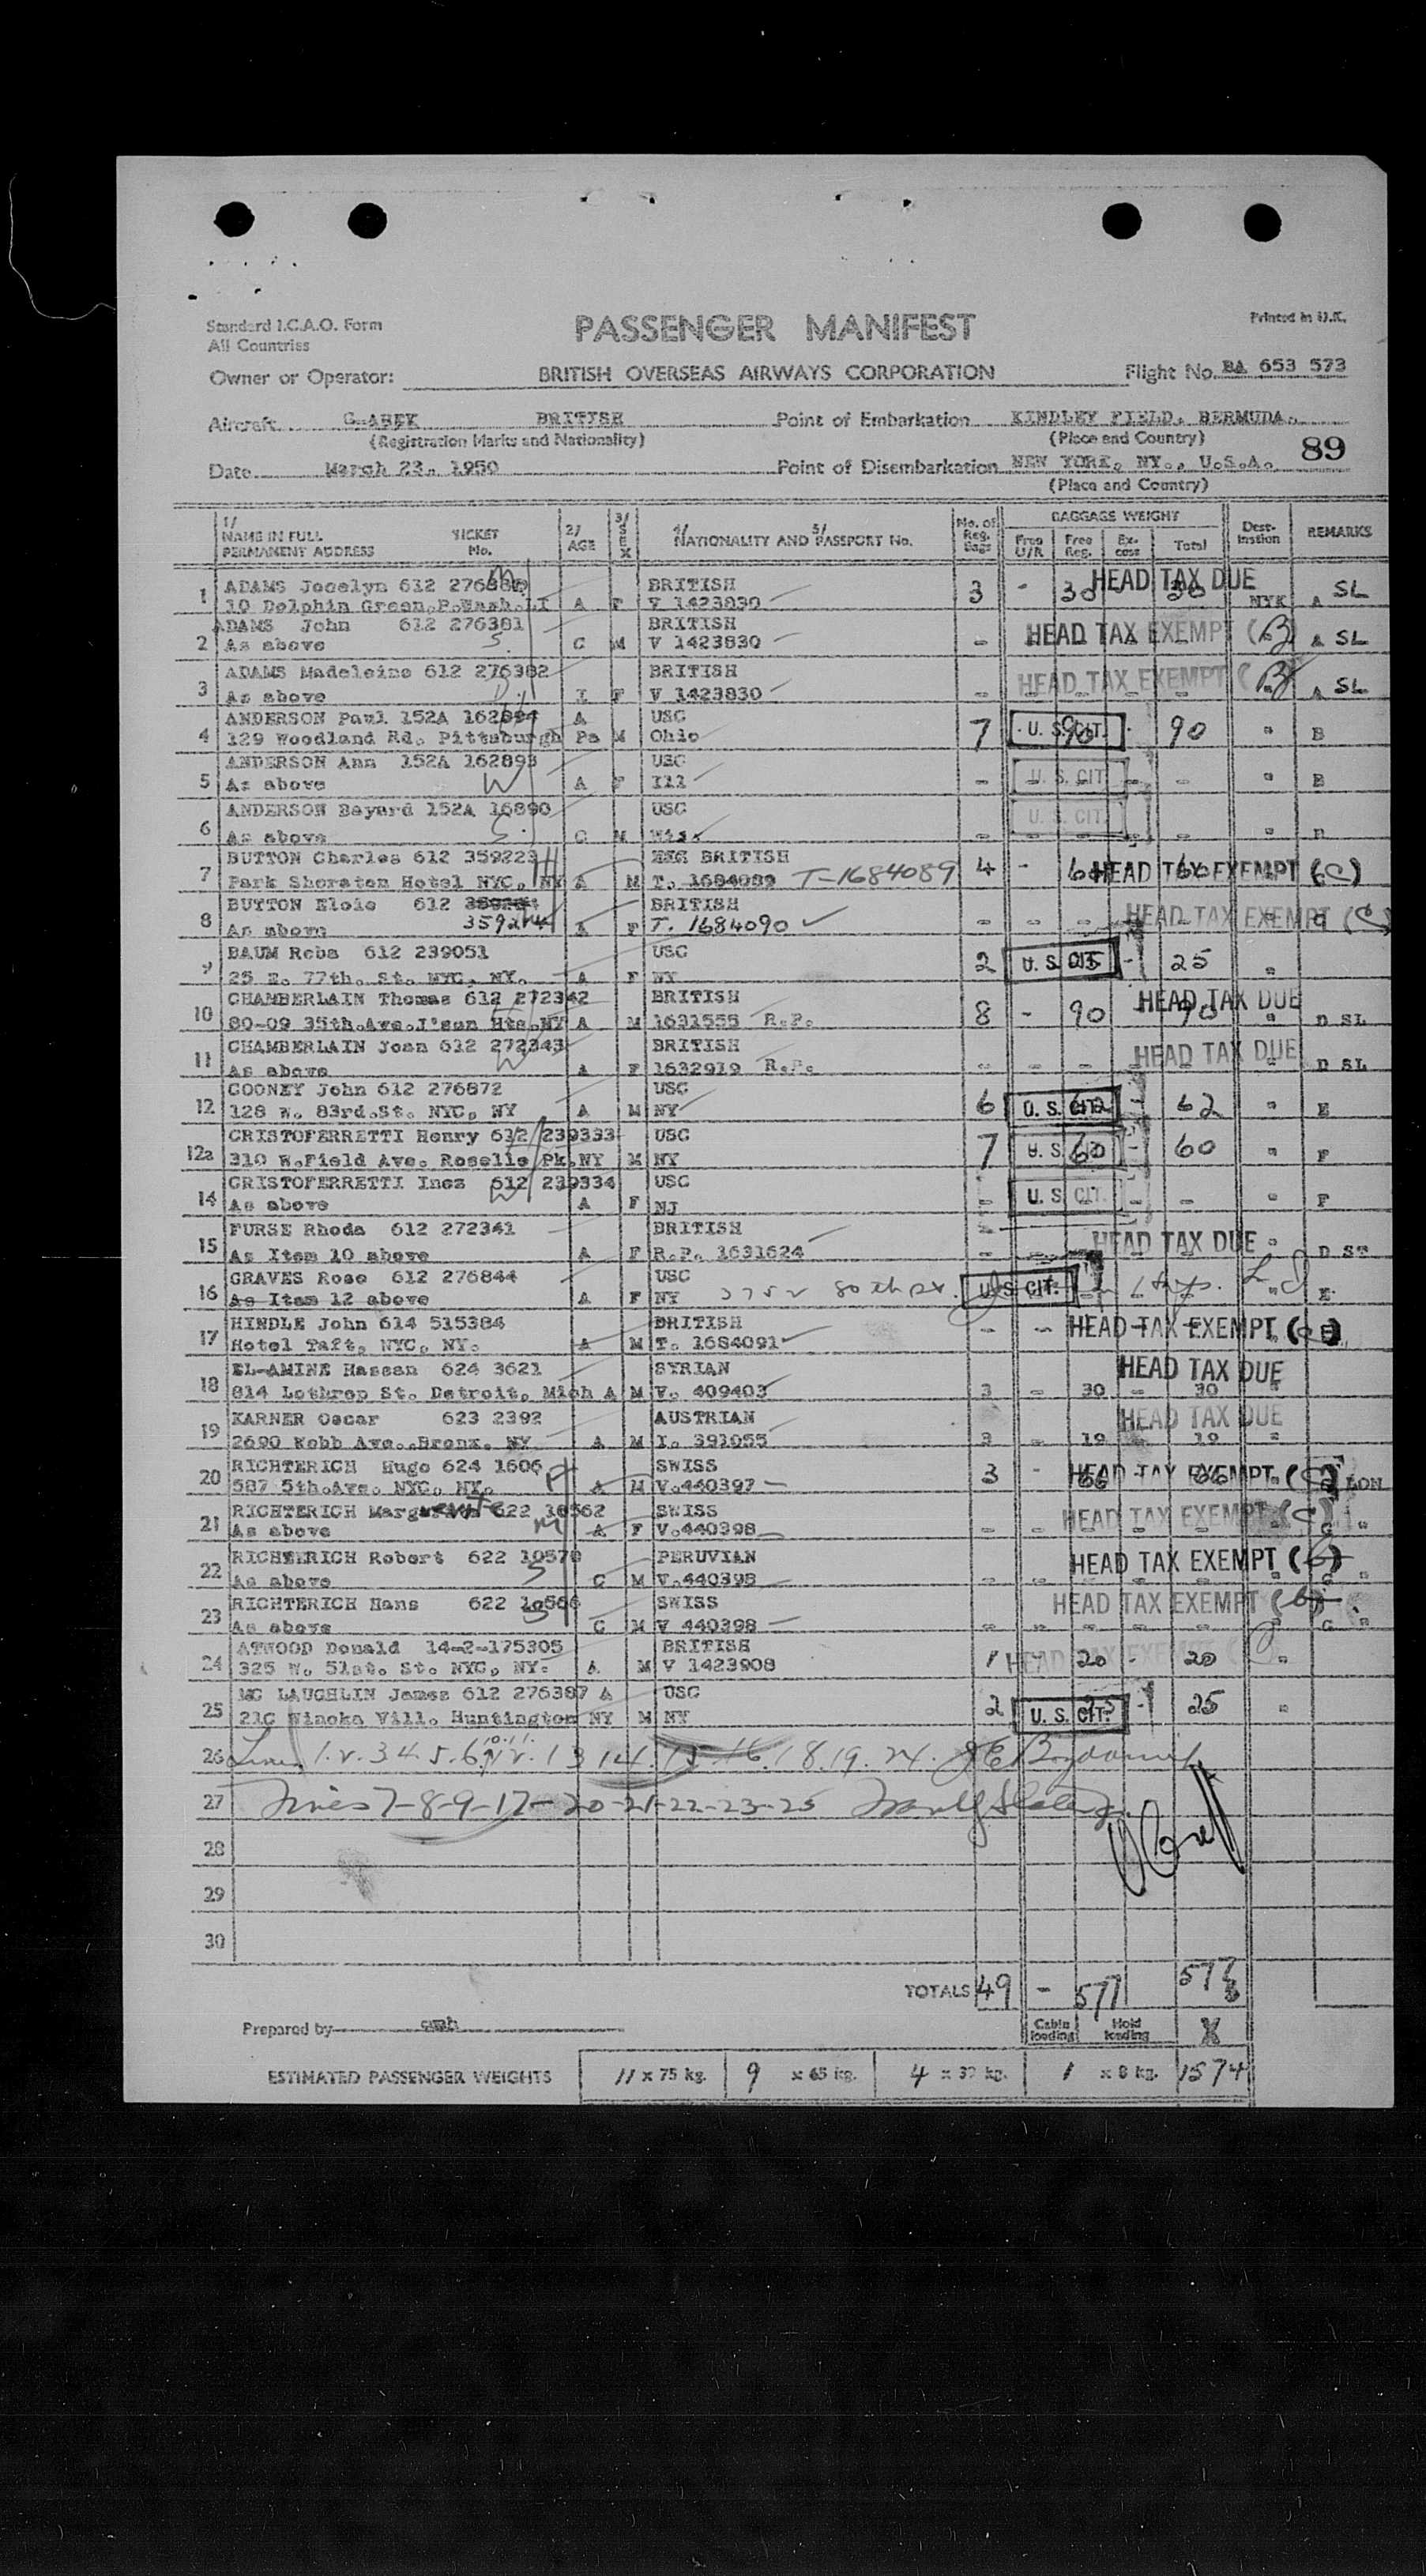 Standard I.C.A.O. Form
All Countries
PASSENGER MANIFEST
Printed in U.K.
Owner or Operator: BRITISH OVERSEAS AIRWAYS CORPORATION Flight No. BA 653 573
Aircraft G-AHEK BRITISH Point of Embarkation KINDLEY FIELD, BERMUDA.
(Registration Marks and Nationality) (Place and Country)
89
Date March 23. 1950 Point of Disembarkation NEW YORK, NY., U.S.A.
(Place and Country)
1/ NAME IN FULL PERMANENT ADDRESS TICKET No. 2/ AGE 3/ SEX 4/ 5/ NATIONALITY AND PASSPORT No. No. of Reg. Bags BAGGAGE WEIGHT Free U/R Free Reg. Ex-cess Total Dest-ination REMARKS
1 ADAMS Jocelyn 612 BRITISH 3 - 30 HEAD TAX DUE 30 SL
10 Dolphin Green,P.Wash.LI A F V 1423830 NYK A
ADAMS John 612 276381 BRITISH HEAD TAX EXEMPT (B)
2 As above C M V 1423830 - A SL
ADAMS Madeleine 612 276382 BRITISH HEAD TAX EXEMPT (B)
3 As above I F V 1423830 - A SL
ANDERSON Paul 152A A USC
4 129 Woodland Rd. Pittsburgh Pa M Ohio 7 U. S. CIT. 90 90 " B
ANDERSON Ann 152A 162893 USC
5 As above W A F Ill - U. S. CIT. - - " B
ANDERSON Bayard 152A 16890 USC U. S. CIT.
6 As above S. C M Miss - " B
BUTTON Charles 612 359223 BRITISH
7 Park Sheraton Hotel NYC, NY A M T. 1684089 T-1684089 4 - 60 HEAD TAX EXEMPT (C)
BUTTON Elois 612 BRITISH HEAD TAX EXEMPT (C)
8 As above 359224 A F T. 1684090
BAUM Reba 612 239051 USC
9 25 E. 77th. St. NYC, NY. A F NY 2 U. S. CIT. 25 - 25 "
CHAMBERLAIN Thomas 612 272342 BRITISH HEAD TAX DUE
10 80-09 35th.Ave.J'son Hts.NY A M 1631555 R.P. 8 - 90 90 " D SL
CHAMBERLAIN Joan 612 272343 BRITISH HEAD TAX DUE
11 As above W A F 1632919 R.P. - D SL
COONEY John 612 276872 USC
12 128 W. 83rd.St. NYC, NY A M NY 6 U. S. CIT. 62 - 62 " E
CRISTOFERRETTI Henry 612 239333 USC
12a 310 W.Field Ave. Roselle Pk.NY M NY 7 U. S. CIT. 60 - 60 " F
CRISTOFERRETTI Inez 612 239334 USC
14 As above W A F NJ - U. S. CIT. - - " F
FURSE Rhoda 612 272341 BRITISH HEAD TAX DUE
15 As Item 10 above A F R.P. 1631624 - D
GRAVES Rose 612 276844 USC
16 As Item 12 above A F NY U. S. CIT. " E
HINDLE John 614 515384 BRITISH
17 Hotel Taft, NYC, NY. A M T. 1684091 - - HEAD TAX EXEMPT
EL-AMINE Hassan 624 3621 SYRIAN HEAD TAX DUE
18 814 Lothrop St. Detroit, Mich A M V. 409403 3 - 30 - 30 "
KARNER Oscar 623 2392 AUSTRIAN HEAD TAX DUE
19 2690 Webb Ave.,Bronx. NY A M I. 391055 3 - 19 19 "
RICHTERICH Hugo 624 1606 SWISS
20 587 5th.Ave. NYC, NY. A M V.440397 3 - 66 HEAD TAX EXEMPT (C) LON
RICHTERICH 622 10562 SWISS
21 As above A F V.440398 HEAD TAX EXEMPT (C) G "
RICHTERICH Robert 622 10570 PERUVIAN HEAD TAX EXEMPT
22 As above S C M V.440398 G "
RICHTERICH Hans 622 10566 SWISS HEAD TAX EXEMPT
23 As above C M V 440398 G "
ATWOOD Donald 14-2-175305 BRITISH
24 325 W. 51st. St. NYC, NY. A M V 1423908 1 HEAD TAX EXEMPT 20 - 20 "
MC LAUGHLIN James 612 276387 A USC
25 21C Winoka Vill. Huntington NY M NY 2 U. S. CIT. 25 - 25 "
26 Lines 1. 2. 3 4. 5. 6. 10. 11. 12. 13 14. 15. 16. 18. 19. 24.
27 Lines 7-8-9-17-20-21-22-23-25
28
29
30
TOTALS 49 - 577 577
Prepared by Cabin loading Hold loading
ESTIMATED PASSENGER WEIGHTS 11 x 75 kg. 9 x 65 kg. 4 x kg. 1 x 8 kg. 1574